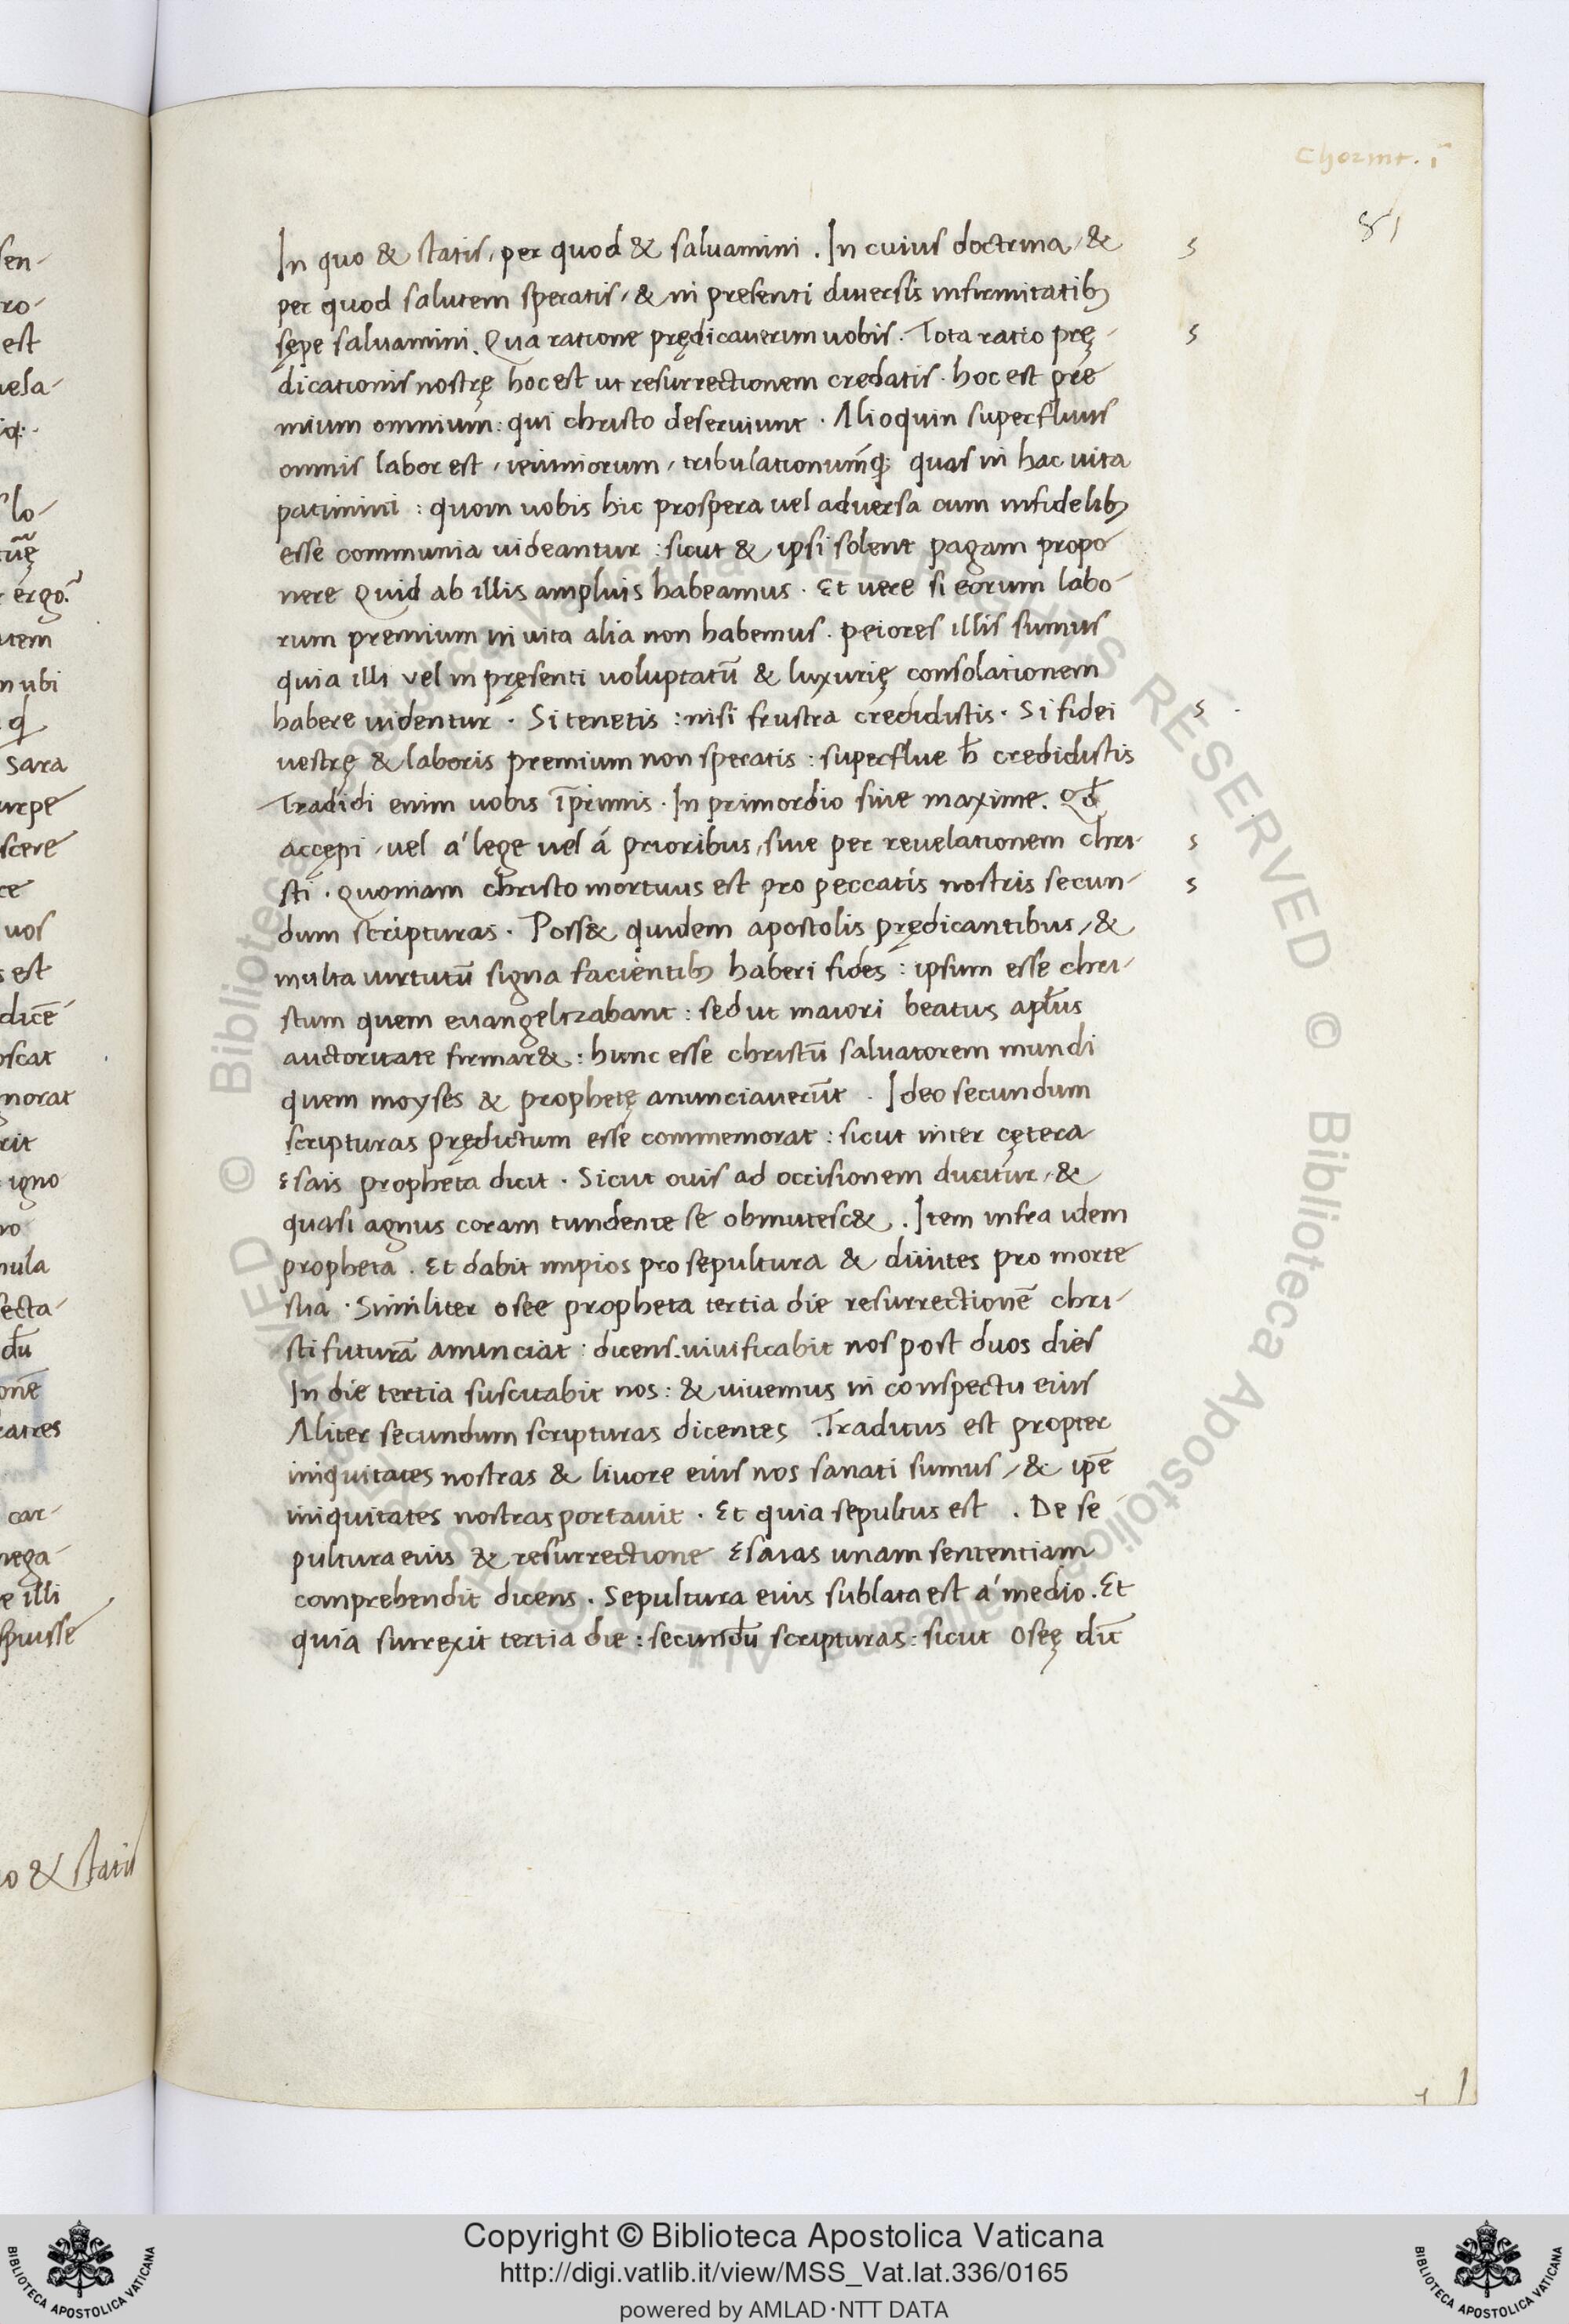 Chorint. ī
81
In quo & statis, per quod & saluamini. In cuius doctrina, & s
per quod salutem speratis, & in presenti diuersis infirmitatibꝫ
sępe saluamini. Qua ratione prędicauerim uobis. Tota ratio prę- s
dicationis nostrę hoc est ut resurrectionem credatis. hoc est pre
mium omnium: qui christo deseruiunt. Alioquin superfluus
omnis labor est, ieiuniorum, tribulationumq; quas in hac uita
patimini: quom uobis hic prospera uel aduersa cum infidelibꝫ
esse communia uideantur: sicut & ipsi solent pagani propo
nere Quid ab illis amplius habeamus. Et uere si eorum labo-
rum premium in uita alia non habemus. peiores illis sumus
quia illi vel in pręsenti uoluptatū & luxurię consolationem
habere uidentur. Si tenetis: nisi frustra credidistis. Si fidei s
uestrę & laboris premium non speratis: superflue ħ credidistis
Tradidi enim uobis īprimis. In primordio siue maxime. Qđ
accępi, uel á lege uel á prioribus, siue per reuelationem chri- s
sti. Quoniam christo mortuus est pro peccatis nostris secun- s
dum scripturas. Poss& quidem apostolis prędicantibus, &
multa uirtutū signa facientibꝫ haberi fides: ipsum esse chri-
stum quem euangelizabant: sed ut maiori beatus apl̄us
auctoritate firmar&: hunc esse christū saluatorem mundi
quem moyses & prophetę anunciauerūt. Ideo secundum
scripturas prędictum esse commemorat: sicut inter cętera
Esais propheta dicit. Sicut ouis ad occisionem ducitur, &
quasi agnus coram tundente se obmutesc&. Item infra idem
propheta. Et dabit impios pro sepultura & diuites pro morte
sua. Similiter osee propheta tertia die resurrectionē chri-
sti futurā anunciat: dicens. uiuificabit nos post duos dies
In die tertia suscitabit nos: & uiuemus in conspectu eius
Aliter secundum scripturas dicentes. Traditus est propter
iniquitates nostras & liuore eius nos sanati sumus, & ip̄e
iniquitates nostras portauit. Et quia sepultus est. De se
pultura eius & resurrectione Esaias unam sententiam
comprehendit dicens. Sepultura eius sublata est á medio. Et
quia surrexit tertia die: secundū scripturas: sicut Oseę dīc
sen-
ro-
est
uela-
iq:.
lo-
ergo?
utem
n ubi
q
Sara
urpe
scere
uos
s est
dicē
oscat
morat
rit
igno
ro
nula
secta-
đu
onē
ratres
car-
nega-
e illi
spuisse
o & statis
Copyright © Biblioteca Apostolica Vaticana
http://digi.vatlib.it/view/MSS_Vat.lat.336/0165
powered by AMLAD·NTT DATA
BIBLIOTECA APOSTOLICA VATICANA
BIBLIOTECA APOSTOLICA VATICANA